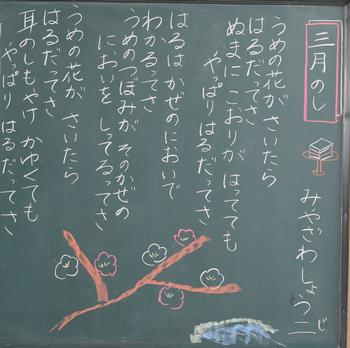 三月のし
みやざわしょう二
じ
うめの花が さいたら
はるだってさ
ぬまに こおりが はってても
やっぱり はるだってさ
はるは かぜのにおいで
わかるってさ
うめのつぼみが そのかぜの
においを しってるってさ
うめの花が さいたら
はるだってさ
耳のしもやけ かゆくても
やっぱり はるだってさ